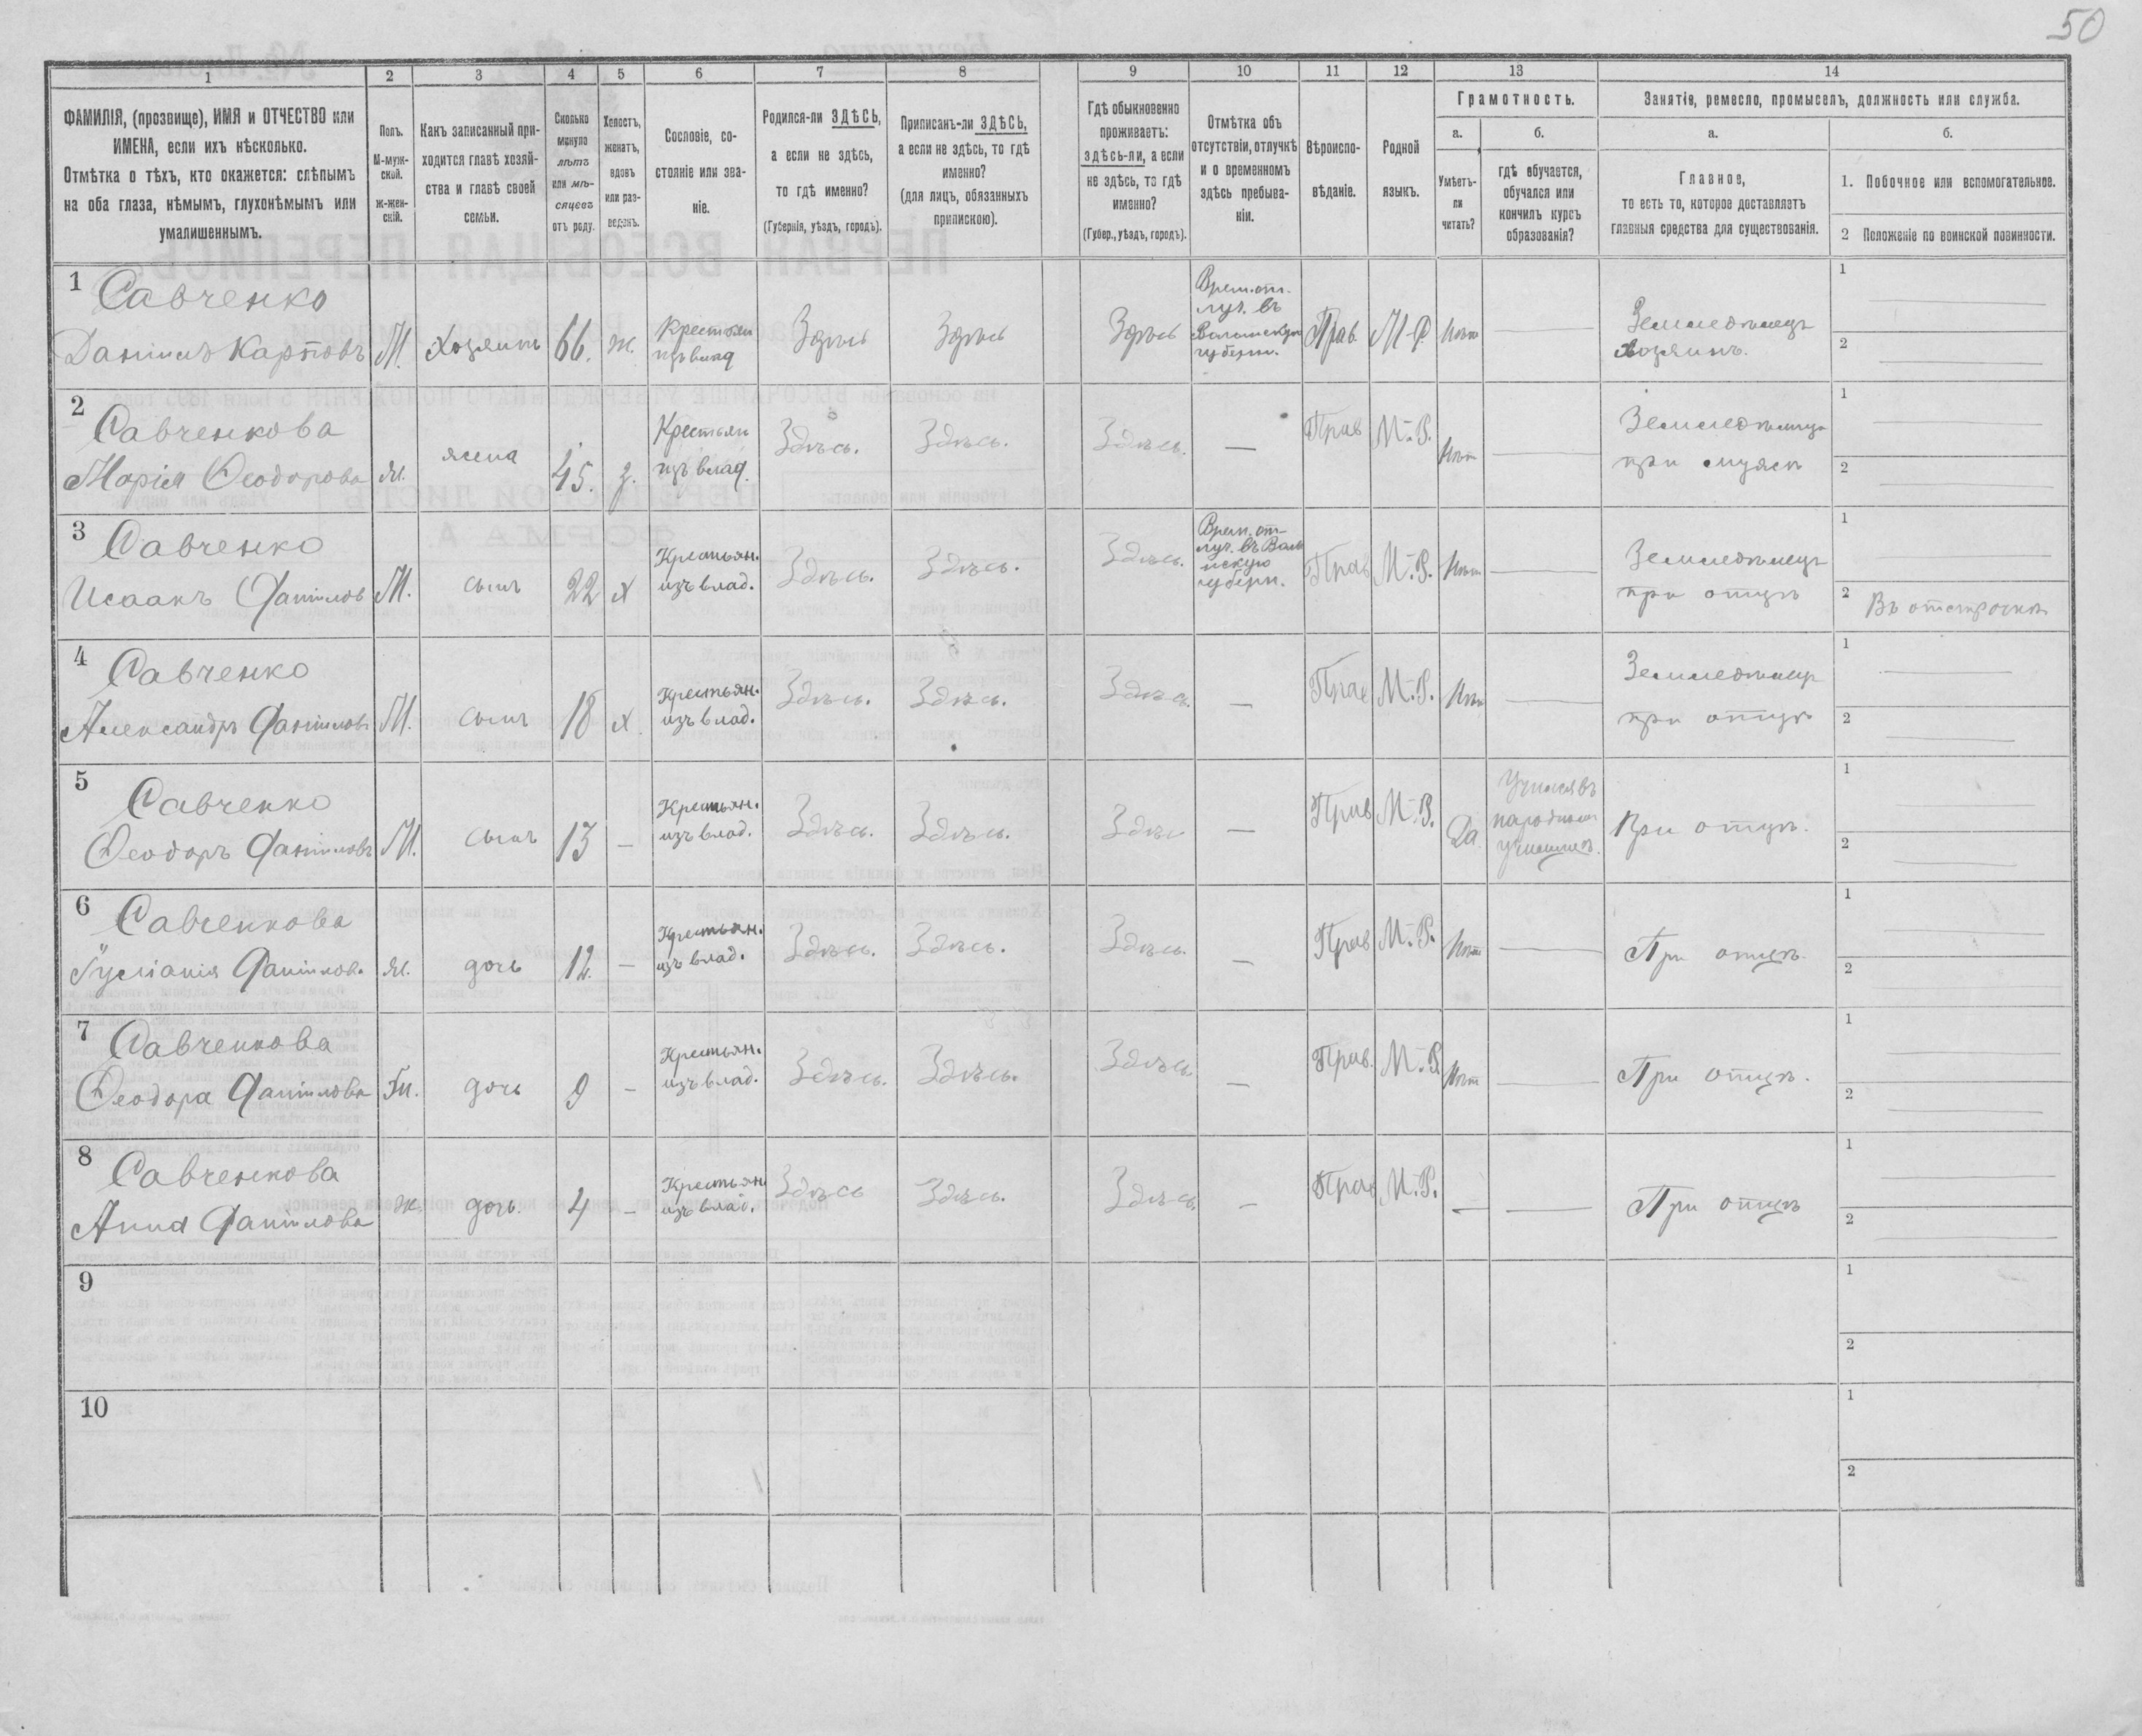 50
1 2 3 4 5 6 7 8 9 10 11 12 13 14
ФАМИЛІЯ, (прозвище), ИМЯ и ОТЧЕСТВО или
ИМЕНА, если ихъ нѣсколько.
Отмѣтка о тѣхъ, кто окажется: слѣпымъ
на оба глаза, нѣмымъ, глухонѣмымъ или
умалишеннымъ.
Полъ.
М-муж-
ской.
ж-жен-
скій.
Какъ записанный при-
ходится главѣ хозяй-
ства и главѣ своей
семьи.
Сколько
минуло
лѣтъ
или мѣ-
сяцевъ
отъ роду.
Холостъ,
женатъ,
вдовъ
или раз-
веденъ.
Сословіе, со-
стояніе или зва-
ніе.
Родился-ли ЗДѢСЬ,
а если не здѣсь,
то гдѣ именно?
(Губернія, уѣздъ, городъ).
Приписанъ-ли ЗДѢСЬ,
а если не здѣсь, то гдѣ
именно?
(для лицъ, обязанныхъ
припискою).
Гдѣ обыкновенно
проживаетъ:
здѣсь-ли, а если
не здѣсь, то гдѣ
именно?
(Губер., уѣздъ, городъ).
Отмѣтка объ
отсутствіи, отлучкѣ
и о временномъ
здѣсь пребыва-
ніи.
Вѣроиспо-
вѣданіе.
Родной
языкъ.
Грамотность.
а.
Умѣетъ-
ли
читать?
б.
гдѣ обучается,
обучался или
кончилъ курсъ
образованія?
Занятіе, ремесло, промыселъ, должность или служба.
а.
Главное,
то есть то, которое доставляетъ
главныя средства для существованія.
б.
1. Побочное или вспомогательное.
2 Положеніе по воинской повинности.
1 Савченко
Даніилъ Карповъ
М.
Хозяинъ
66.
ж.
Крестьян
изъ влад
Здѣсь
Здѣсь
Здѣсь
Врем. от-
луч. въ
губерн.
Прав.
М-Р
Нѣт
Земледѣлецъ
хозяинъ.
1
2
2
Савченкова
Марія Ѳеодорова
жена
45.
з.
Крестьян
изъ влад.
Здѣсь.
Здѣсь.
Здѣсь.
—
Прав
М.-Р.
Нѣт
при мужѣ
1
2
3
Савченко
Исаакъ Даніилов
М.
сынъ
22
х
Крестьян.
изъ влад.
Здѣсь.
Здѣсь.
Здѣсь.
Врем. от-
луч. въ Волы
нскую
губерн.
Прав
М.-Р.
Нѣт
Земледѣлецъ
при отцѣ
1
2 Въ отсрочкѣ
4
Савченко
Александръ Даніиловъ
М.
сынъ
18
х
Крестьян.
изъ влад.
Здѣсь.
Здѣсь.
Здѣсь.
—
Прав
М.-Р.
Нѣт
Земледѣлецъ
при отцѣ
1
2
5
Савченко
Ѳеодоръ Даніиловъ
М.
сынъ
13
—
Крестьян.
изъ влад.
Здѣсь.
Здѣсь.
Здѣсь
—
Прав
М.-Р.
Да.
Учился въ
народном
училищѣ.
При отцѣ.
1
2
6
Савченкова
Даніилов.
дочь
12.
—
Крестьян.
изъ влад.
Здѣсь.
Здѣсь.
Здѣсь.
—
Прав
М.-Р.
Нѣт
При отцѣ.
1
2
7
Савченкова
Ѳеодора Даніилова
дочь
9
—
Крестьян.
изъ влад.
Здѣсь.
Здѣсь.
Здѣсь.
—
Прав.
М.-Р
Нѣт
При отцѣ.
1
2
8
Савченкова
Анна Даніилова
Ж.
дочь.
4
—
Крестьян
изъ влад.
Здѣсь
Здѣсь.
Здѣсь.
—
Прав
М.-Р.
—
При отцѣ
1
2
9
1
2
10
1
2